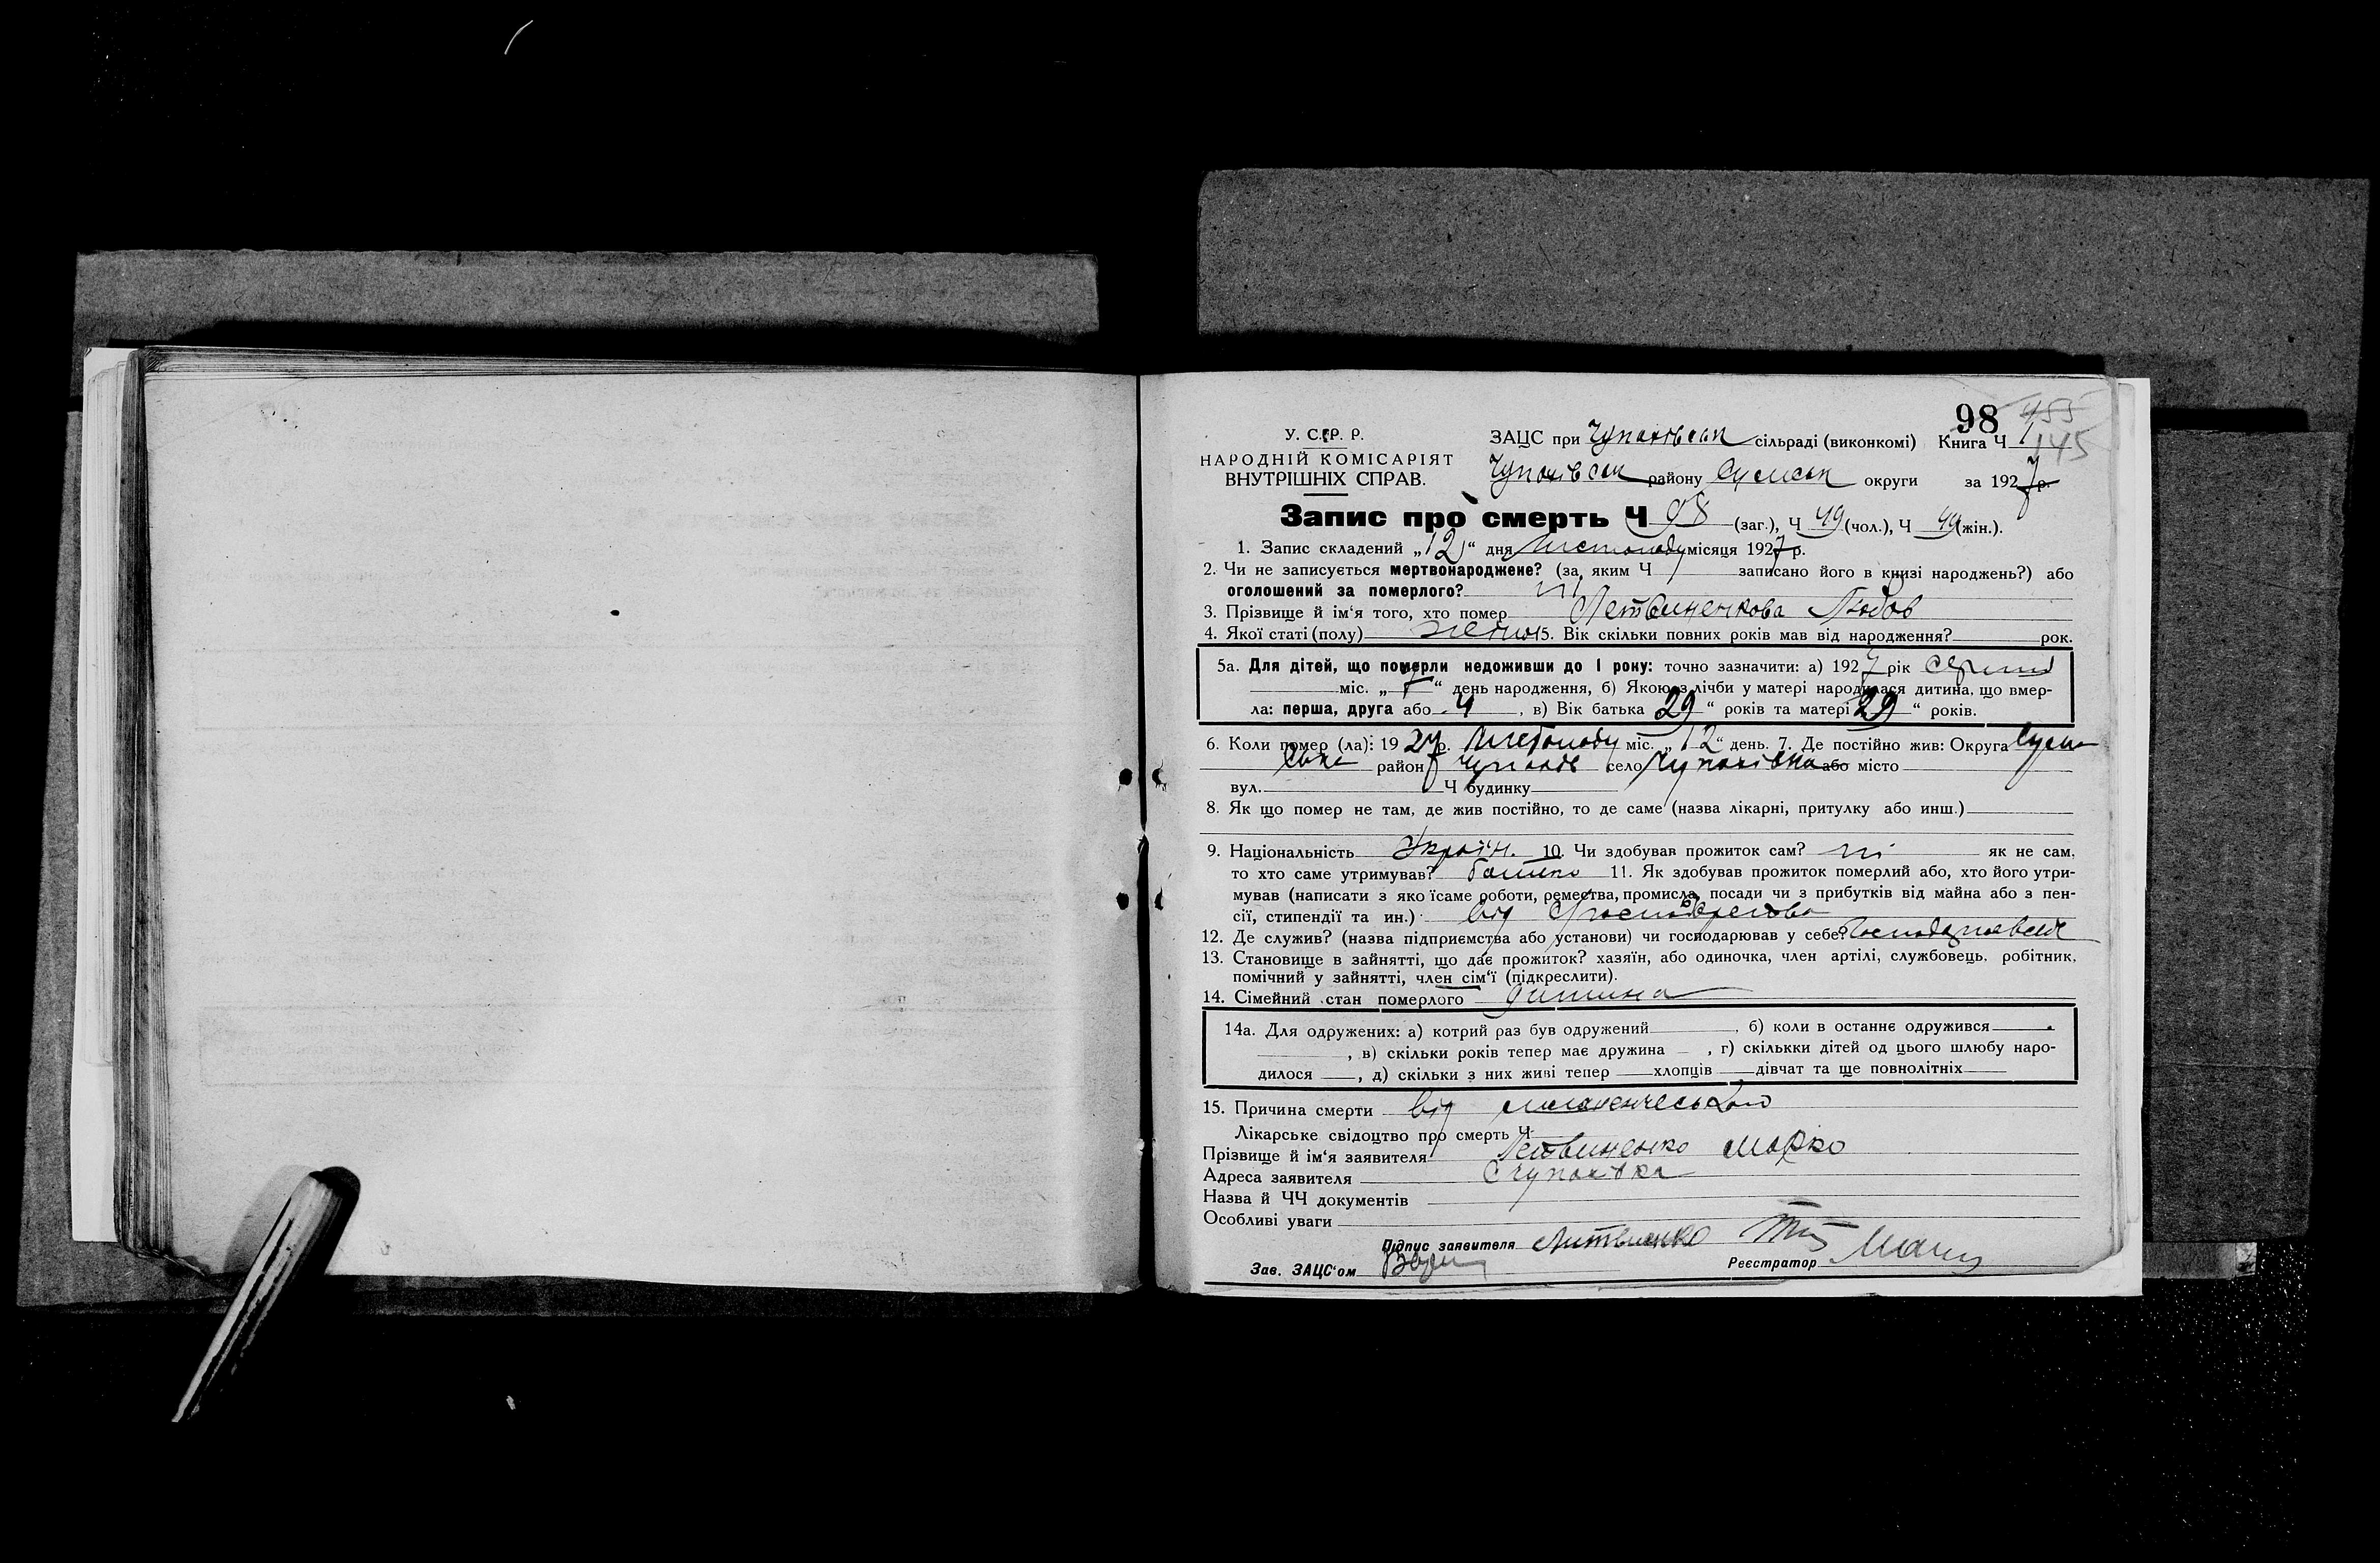 98 455
У. С. Р. Р. ЗАЦС при Чупахівськ сільраді (виконкомі) Книга Ч 1 145
НАРОДНІЙ КОМІСАРІЯТ
ВНУТРІШНІХ СПРАВ. Чупахівськ району Сумськ округи за 1927 р.
Запис про смерть Ч 98 (заг.), Ч 49 (чол.), Ч 49 (жін.).
1. Запис складений „12“ дня листопаду місяця 1927 р.
2. Чи не записується мертвонароджене? (за яким Ч записано його в книзі народжень?) або
оголошений за померлого? ні
3. Прізвище й ім‘я того, хто помер Летвиненкова Любов
4. Якої статі (полу) жіночої 5. Вік скільки повних років мав від народження? рок.
5а. Для дітей, що померли недоживши до 1 року: точно зазначити: а) 1927 рік серпня
міс. „ “ день народження, б) Якою з лічби у матері народилася дитина, що вмер-
ла: перша, друга або 4, в) Вік батька 29 “ років та матері 29 “ років.
6. Коли помер (ла): 1927 р. Листопаду міс. „12“ день. 7. Де постійно жив: Округа Сумсь
ка район Чупахів село Чупахівка або місто
вул. Ч будинку
8. Як що помер не там, де жив постійно, то де саме (назва лікарні, притулку або инш.)
9. Національність Україн. 10. Чи здобував прожиток сам? ні як не сам,
то хто саме утримував? батько 11. Як здобував прожиток померлий або, хто його утри-
мував (написати з яко їсаме роботи, ремества, промисла, посади чи з прибутків від майна або з пен-
сії, стипендії та ин.) від
12. Де служив? (назва підприємства або установи) чи господарював у себе?
13. Становище в зайнятті, що дає прожиток? хазяїн, або одиночка, член артілі, службовець, робітник,
помічний у зайнятті, член сім‘ї (підкреслити).
14. Сімейний стан померлого дитина
14а. Для одружених: а) котрий раз був одружений , б) коли в останнє одружився
, в) скільки років тепер має дружина , г) скількки дітей од цього шлюбу наро-
дилося , д) скільки з них живі тепер хлопців дівчат та ще повнолітніх
15. Причина смерти від
Лікарське свідоцтво про смерть Ч
Прізвище й ім‘я заявителя Летвиненко Марко
Адреса заявителя С Чупахівка
Назва й ЧЧ документів
Особливі уваги
Підпис заявителя Литвиненко
Зав. ЗАЦС‘ом Реєстратор